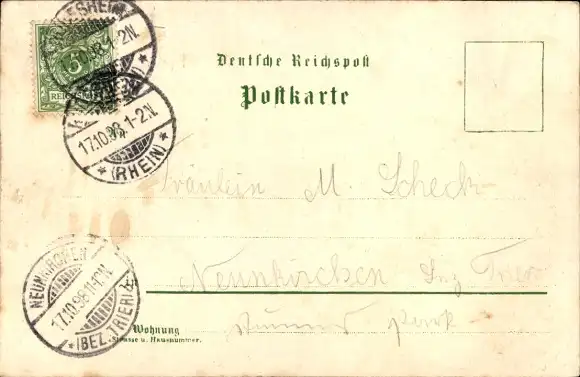 RÜDESHEIM
98. 1-2N.
5
REICHSPOST
17.10.98. 1-2N.
* (RHEIN) *
Deutsche Reichspost
Postkarte
Fräulein M. Scheck
Neunkirchen Bez Trier
NEUNKIRCHEN
17.10.98. 11-12N.
* (BEZ. TRIER)
Wohnung
Strasse u. Hausnummer.